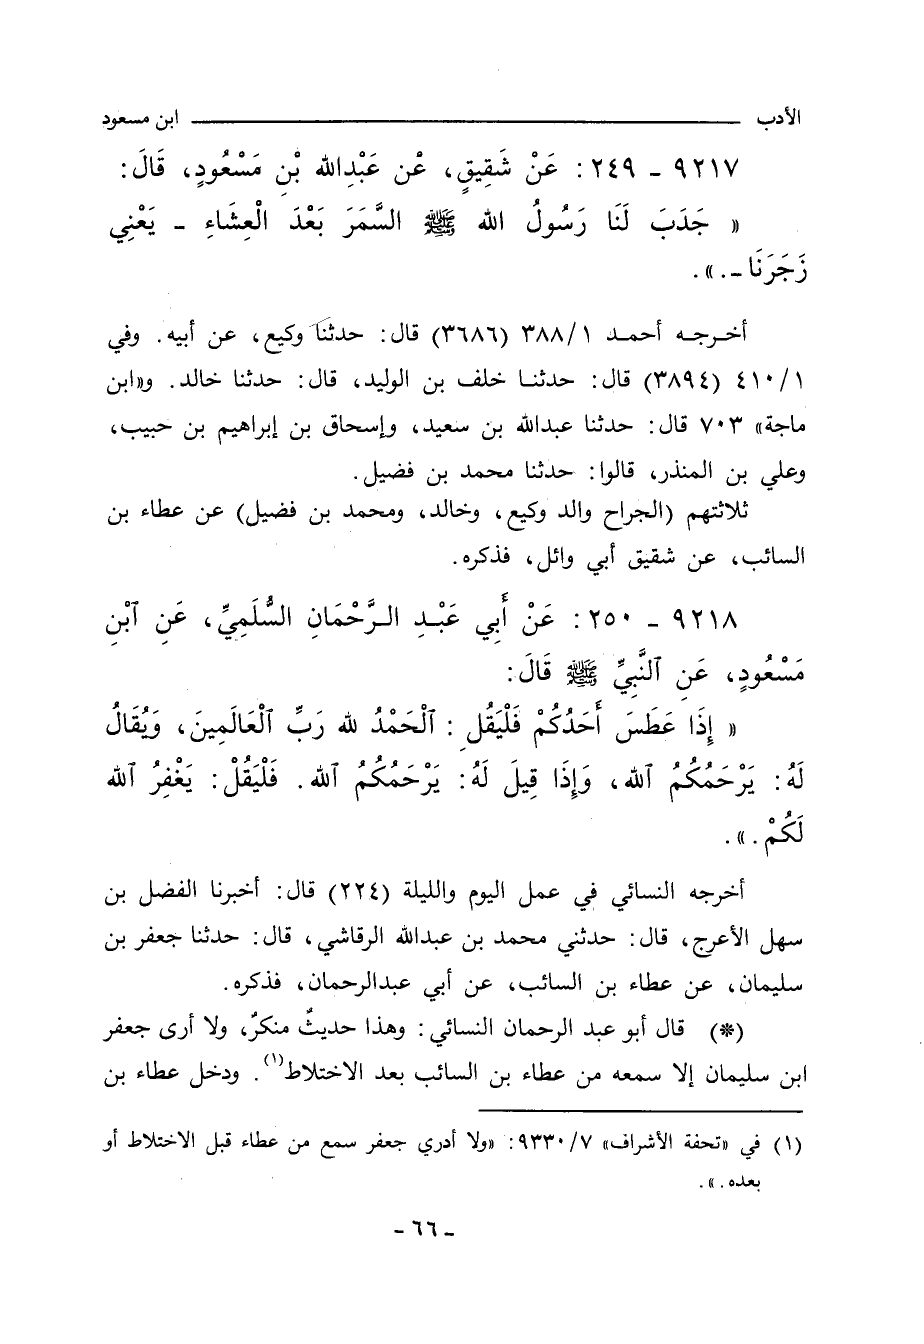 الأدب ــــــــــــــــــــ ابن مسعود
٩٢١٧ - ٢٤٩ : عَنْ شَقِيقٍ، عْن عَبْدِالله بْنِ مَسْعُودٍ، قَالَ :
« جَدَبَ لَنَا رَسُولُ الله ﷺ السَّمَرَ بَعْدَ الْعِشَاءِ - يَعْنِي
زَجَرَنَا -. ».
أخـرجـه أحمـد ٣٨٨/١ (٣٦٨٦) قال : حدثنا وكيع، عن أبيه. وفي
٤١٠/١ (٣٨٩٤) قال : حدثنـا خلف بن الوليد، قال : حدثنا خالد. و«ابن
ماجة» ٧٠٣ قال : حدثنا عبدالله بن سعيد، وإسحاق بن إبراهيم بن حبيب،
وعلي بن المنذر، قالوا : حدثنا محمد بن فضيل.
ثلاثتهم (الجراح والد وكيع، وخالد، ومحمد بن فضيل) عن عطاء بن
السائب، عن شقيق أبي وائل، فذكره.
٩٢١٨ - ٢٥٠ : عَنْ أَبِي عَبْـدِ الـرَّحْمَانِ السُّلَمِيِّ، عَنِ ٱبْنِ
مَسْعُودٍ، عَنِ ٱلنَّبِيِّ ﷺ قَالَ :
« إِذَا عَطَسَ أَحَدُكُمْ فَلْيَقُلِ : ٱلْحَمْدُ لله رَبِّ ٱلْعَالَمِينَ، وَيُقَالُ
لَهُ : يَرْحَمُكُمُ ٱلله، وَإِذَا قِيلَ لَهُ : يَرْحَمُكُمُ ٱلله. فَلْيَقُلْ : يَغْفِرُ ٱلله
لَكُمْ. ».
أخرجه النسائي في عمل اليوم والليلة (٢٢٤) قال : أخبرنا الفضل بن
سهل الأعرج، قال : حدثني محمد بن عبدالله الرقاشي، قال : حدثنا جعفر بن
سليمان، عن عطاء بن السائب، عن أبي عبدالرحمان، فذكره.
(*) قال أبو عبد الرحمان النسائي : وهذا حديثٌ منكرٌ، ولا أرى جعفر
ابن سليمان إلا سمعه من عطاء بن السائب بعد الاختلاط(١). ودخل عطاء بن
(١) في «تحفة الأشراف» ٩٣٣٠/٧ : «ولا أدري جعفر سمع من عطاء قبل الاختلاط أو
بعده. ».
- ٦٦ -